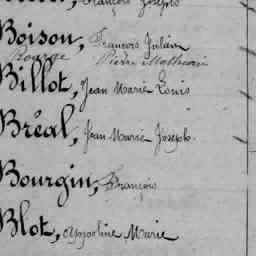 François Joseph
Boison, François Julien
Rouage Pierre Mathurin
Billot, Jean Marie Louis
Bréal, Jean Marie Joseph
Bourgin, François
Blot, Appoline Marie